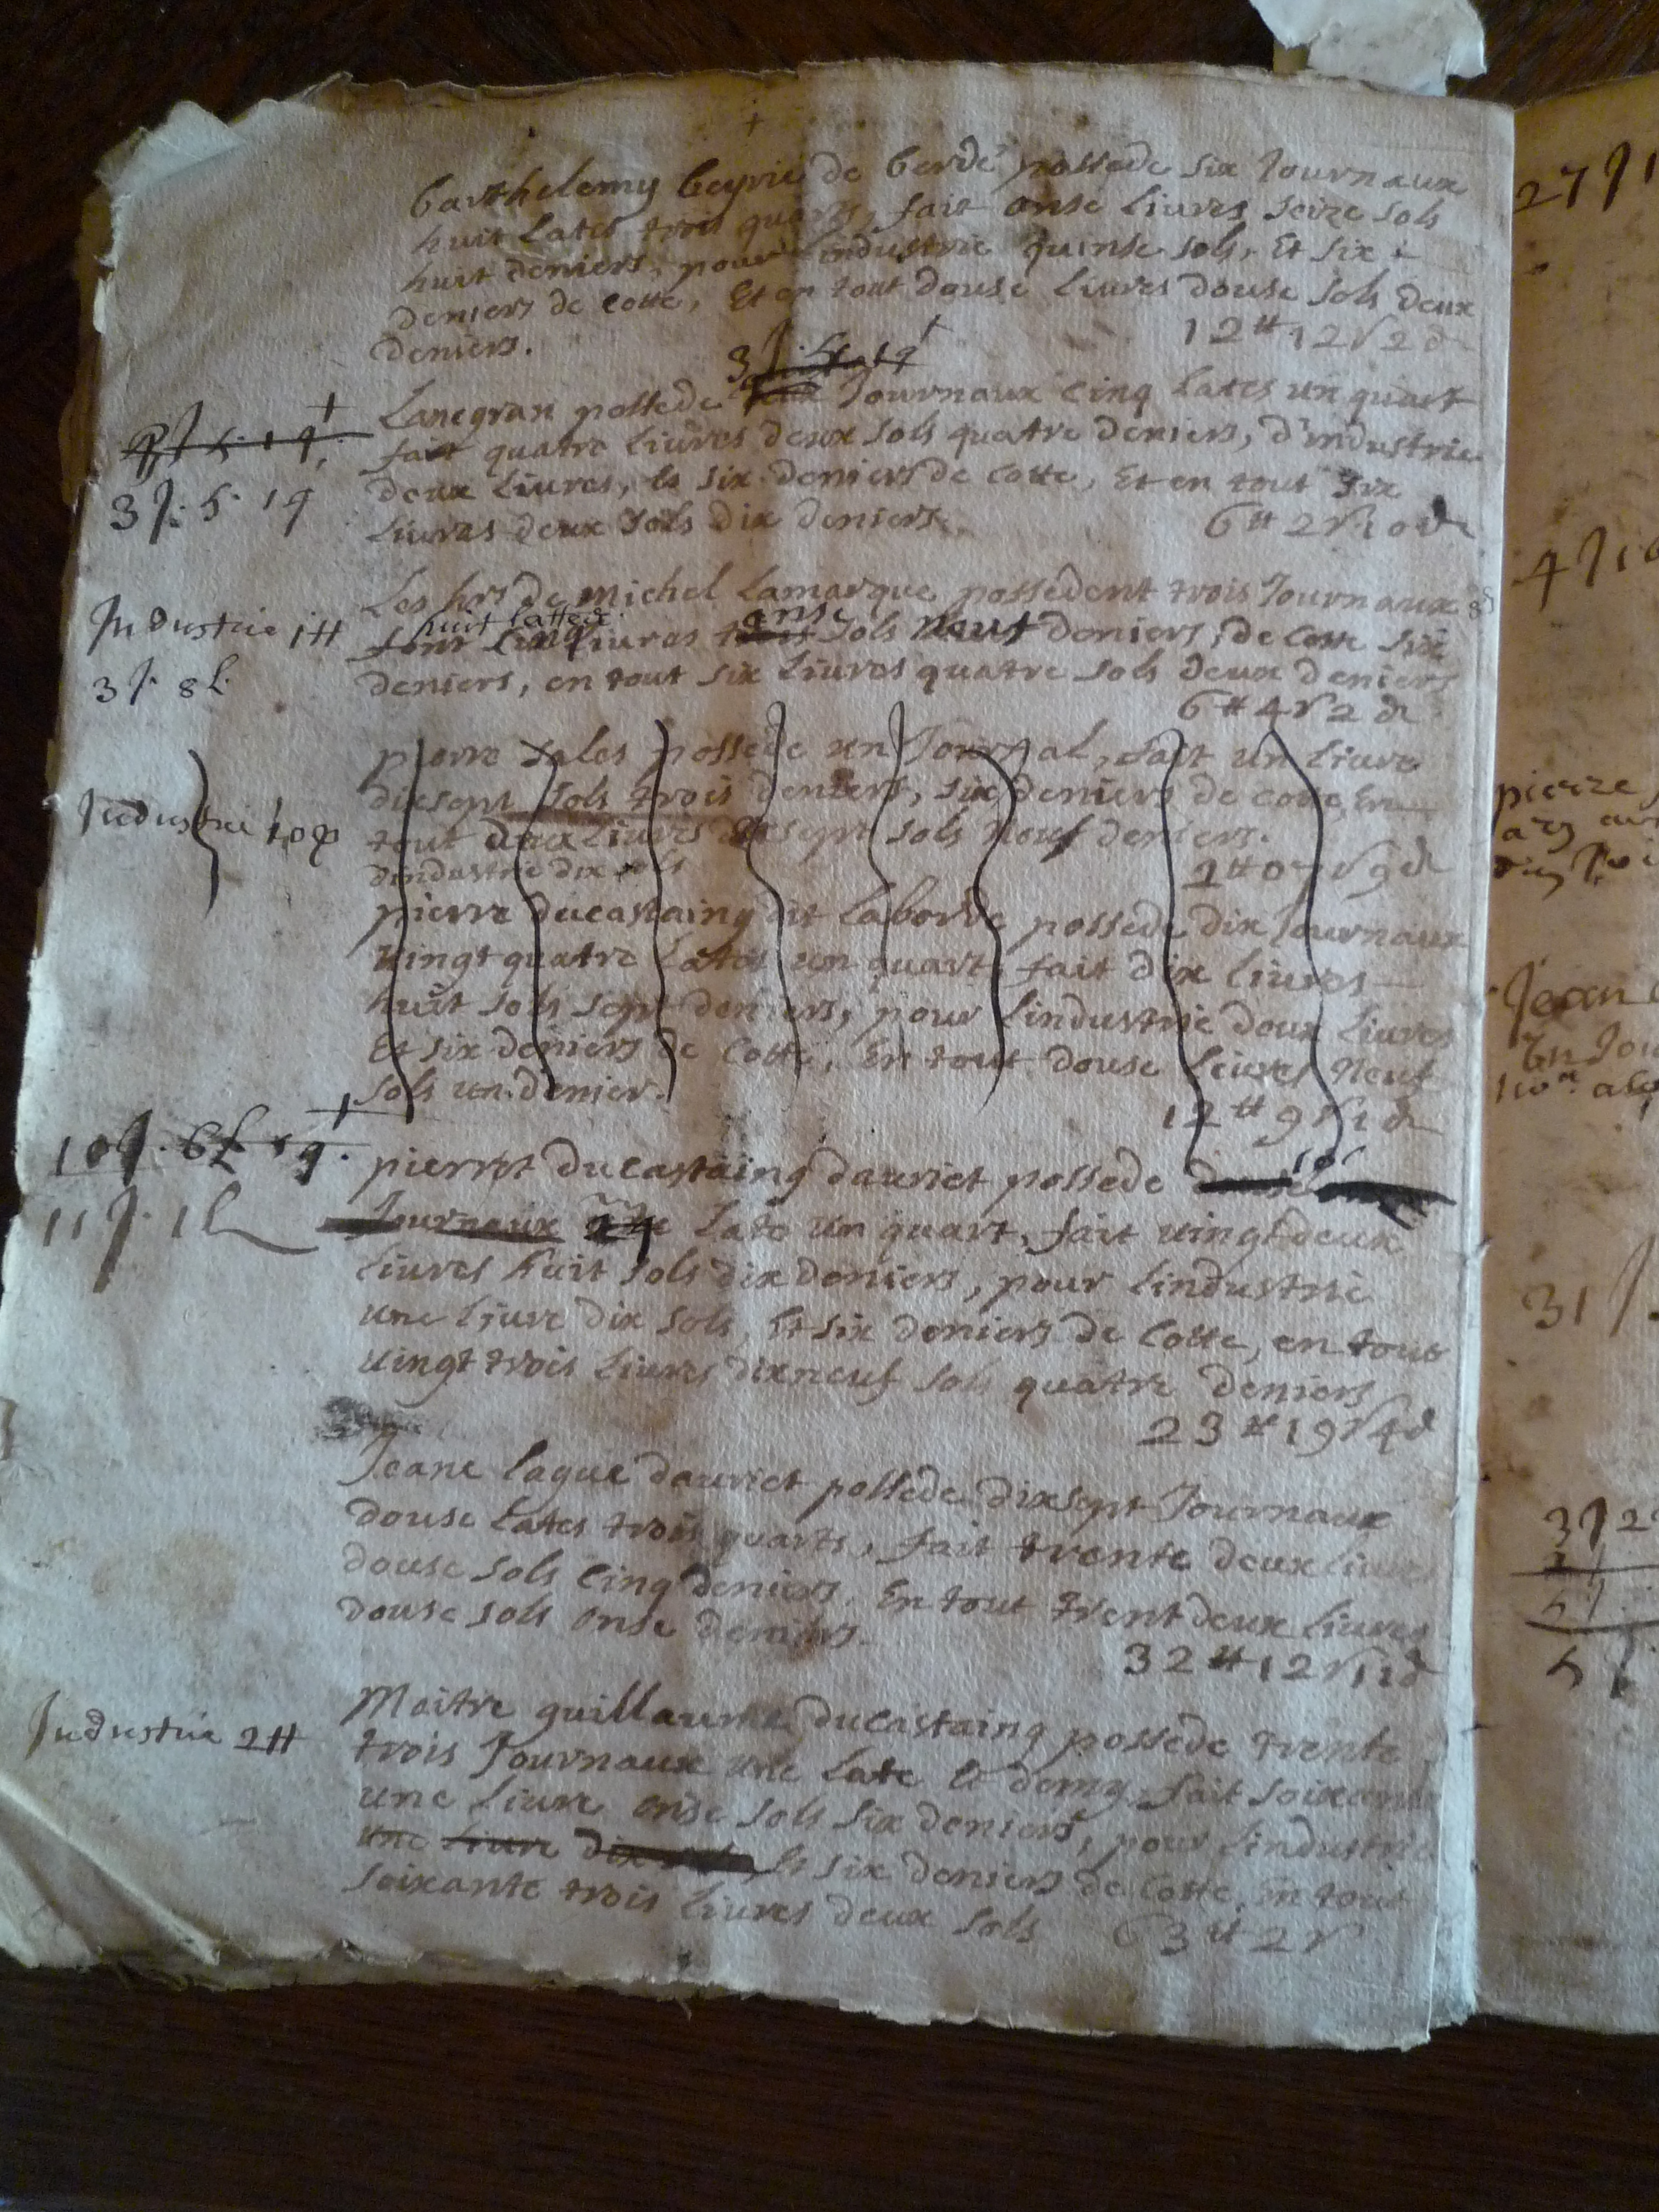 barthelemy beyrie de berde possede six Journaux
huit Lates trois quarts, fait onse Liures seize sols
huit deniers, pour Lindustrie quinse sols, Et six
deniers de cotte, Et en tout douse Liures douse sols deux
deniers.
12 ₶ 12 s 2 d
3 J. 5 L 1 q
Lanegran possede Journaux cinq Lates un quart
fait quatre Liures deux sols quatre deniers, d'industrie
deux Liures, & six deniers de cotte, Et en tout six
Liures deux sols dix deniers.
6 ₶ 2 s 10 d
3 J. 5. 1 q
Les hrs de Michel Lamarque possedent trois Journaux
huit lattes
onse
font cinq Liures sols neuf deniers, de cotte six
deniers, en tout six Liures quatre sols deux deniers
6 ₶ 4 s 2 d
Industrie 1 ₶
3 J. 8 L.
pierre sales possede un Journal, fait un Liure
dixsept sols trois deniers, six deniers de cotte, En
tout deux Liures sept sols neuf deniers.
dindustrie dix sols
2 ₶ 07 s 9 d
Industrie 10 s
pierre ducastaing dit Laborde possede dix Journaux
Vingt quatre Lates un quart, fait dix Liures
huit sols sept deniers, pour Lindustrie deux Liures
Et six deniers de cotte, En tout douse Liures neuf
sols un denier.
12 ₶ 9 s 1 d
10 J. 6 L 1 q.
11 J. 1 L
pierrot ducastaing dauriet possede
Journaux Late un quart, fait uingt deux
Liures huit sols dix deniers, pour Lindustrie
une Liure dix sols, Et six deniers de Cotte, en tout
uingt trois Liures dixneuf sols quatre deniers
23 ₶ 19 s 4 d
Jeane Lague dauriet possede dixsept Journaux
douse Lates trois quarts, fait trente deux Liures
douse sols cinq deniers, En tout trent deux Liures
douse sols onse deniers.
32 ₶ 12 s 11 d
Maitre guillaume ducastaing possede trente
trois Journaux une Late & demy, fait soixante
une Liure onse sols six deniers, pour Lindustrie
une Liure dix & six deniers de Cotte, En tout
soixante trois Liures deux sols 63 ₶ 2 s
Industrie 2 ₶
27 J 1
4 J 1
pierre
Jean
En Jou
31 J.
3 J 2